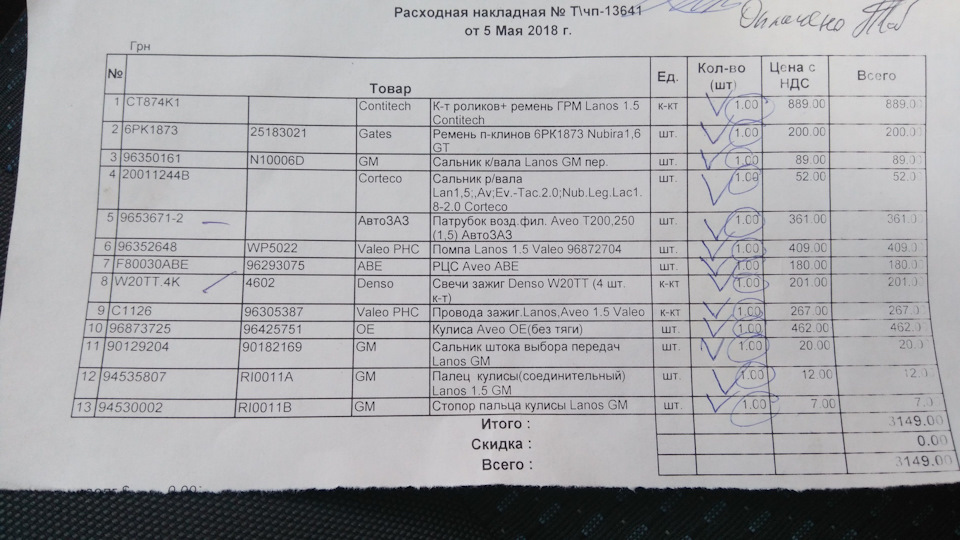 Расходная накладная № Т\чп-13641
Оплачено
от 5 Мая 2018 г.
Грн
№ Товар Ед. Кол-во (шт) Цена с НДС Всего
1 CT874K1 Contitech К-т роликов+ ремень ГРМ Lanos 1.5 к-кт 1.00 889.00 889.00
Contitech
2 6PK1873 25183021 Gates Ремень п-клинов 6PK1873 Nubira1,6 шт. 1.00 200.00 200.00
GT
3 96350161 N10006D GM Сальник к/вала Lanos GM пер. шт. 1.00 89.00 89.00
4 20011244B Corteco Сальник р/вала шт. 1.00 52.00 52.00
Lan1,5;,Av;Ev.-Tac.2.0;Nub.Leg.Lac1.
8-2.0 Corteco
5 9653671-2 АвтоЗАЗ Патрубок возд.фил. Aveo T200,250 шт. 1.00 361.00 361.00
(1,5) АвтоЗАЗ
6 96352648 WP5022 Valeo PHC Помпа Lanos 1.5 Valeo 96872704 шт. 1.00 409.00 409.0
7 F80030ABE 96293075 ABE РЦС Aveo ABE шт. 1.00 180.00 180.00
8 W20TT.4K 4602 Denso Свечи зажиг Denso W20TT (4 шт. к-кт 1.00 201.00 201.00
к-т)
9 C1126 96305387 Valeo PHC Провода зажиг.Lanos,Aveo 1.5 Valeo к-кт 1.00 267.00 267.0
10 96873725 96425751 OE Кулиса Aveo OE(без тяги) шт. 1.00 462.00 462.0
11 90129204 90182169 GM Сальник штока выбора передач шт. 1.00 20.00 20.0
Lanos GM
12 94535807 RI0011A GM Палец кулисы(соединительный) шт. 1.00 12.00 12.0
Lanos 1.5 GM
13 94530002 RI0011B GM Стопор пальца кулисы Lanos GM шт. 1.00 7.00 7.0
Итого : 3149.00
Скидка : 0.00
Всего : 3149.00